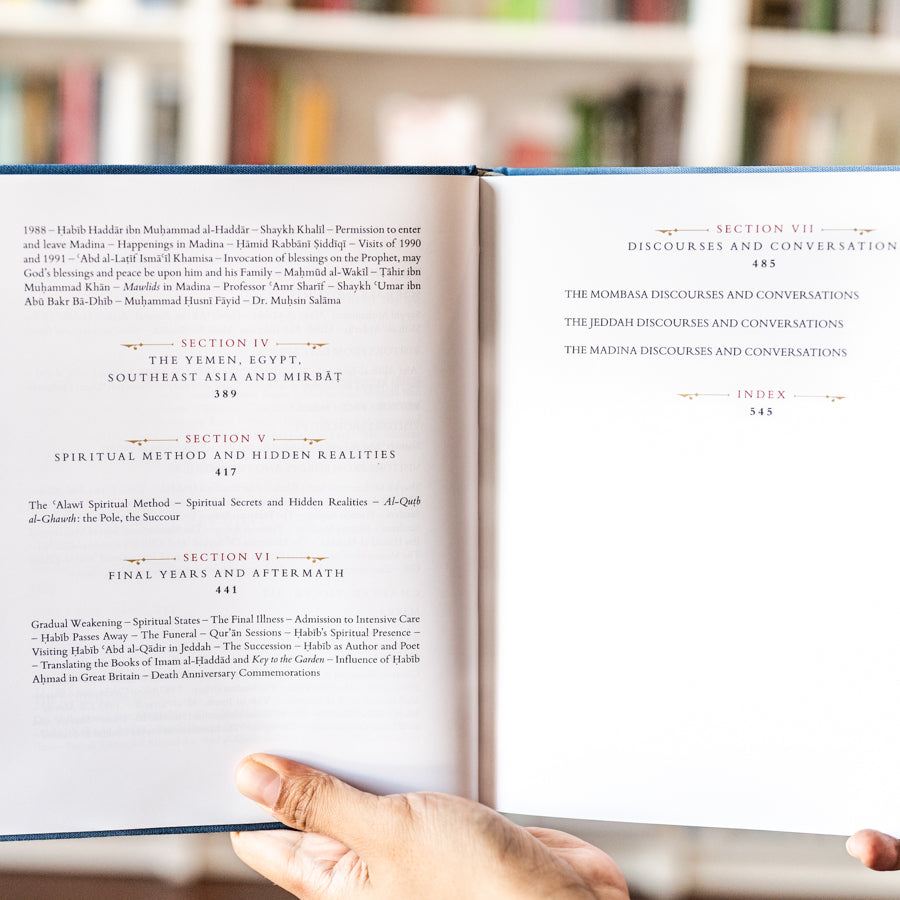 1988 – Ḥabīb Haddār ibn Muḥammad al-Haddār – Shaykh Khalīl – Permission to enter
and leave Madina – Happenings in Madina – Ḥāmid Rabbānī Ṣiddīqī – Visits of 1990
and 1991 – ʿAbd al-Laṭīf Ismāʿīl Khamisa – Invocation of blessings on the Prophet, may
God’s blessings and peace be upon him and his Family – Maḥmūd al-Wakīl – Ṭāhir ibn
Muḥammad Khān – Mawlids in Madina – Professor ʿAmr Sharīf – Shaykh ʿUmar ibn
Abū Bakr Bā-Dhīb – Muḥammad Ḥusnī Fāyid – Dr. Muḥsin Salāma
SECTION IV
THE YEMEN, EGYPT,
SOUTHEAST ASIA AND MIRBĀṬ
389
SECTION V
SPIRITUAL METHOD AND HIDDEN REALITIES
417
The ʿAlawī Spiritual Method – Spiritual Secrets and Hidden Realities – Al-Quṭb
al-Ghawth: the Pole, the Succour
SECTION VI
FINAL YEARS AND AFTERMATH
441
Gradual Weakening – Spiritual States – The Final Illness – Admission to Intensive Care
– Ḥabīb Passes Away – The Funeral – Qurʾān Sessions – Ḥabīb’s Spiritual Presence –
Visiting Ḥabīb ʿAbd al-Qādir in Jeddah – The Succession – Ḥabīb as Author and Poet
– Translating the Books of Imam al-Ḥaddād and Key to the Garden – Influence of Ḥabīb
Aḥmad in Great Britain – Death Anniversary Commemorations
SECTION VII
DISCOURSES AND CONVERSATION
485
THE MOMBASA DISCOURSES AND CONVERSATIONS
THE JEDDAH DISCOURSES AND CONVERSATIONS
THE MADINA DISCOURSES AND CONVERSATIONS
INDEX
545